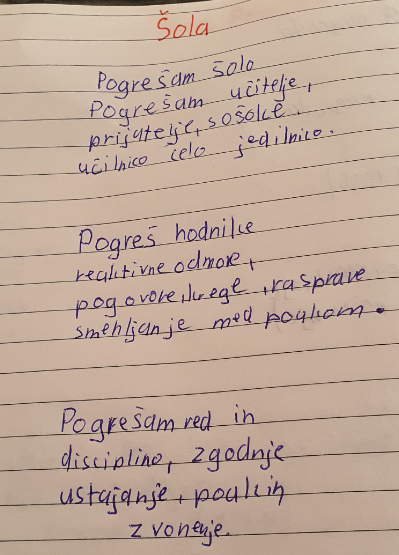 Šola
Pogrešam šolo
Pogrešam učitelje,
prijatelje, sošolce.
učilnico celo jedilnico.
Pogreš hodnike
realitivne odmore,
pogovore, krege, rasprave
smehljanje med poukom.
Pogrešam red in
disciplino, zgodnje
ustajanje, pouk in
zvonenje.